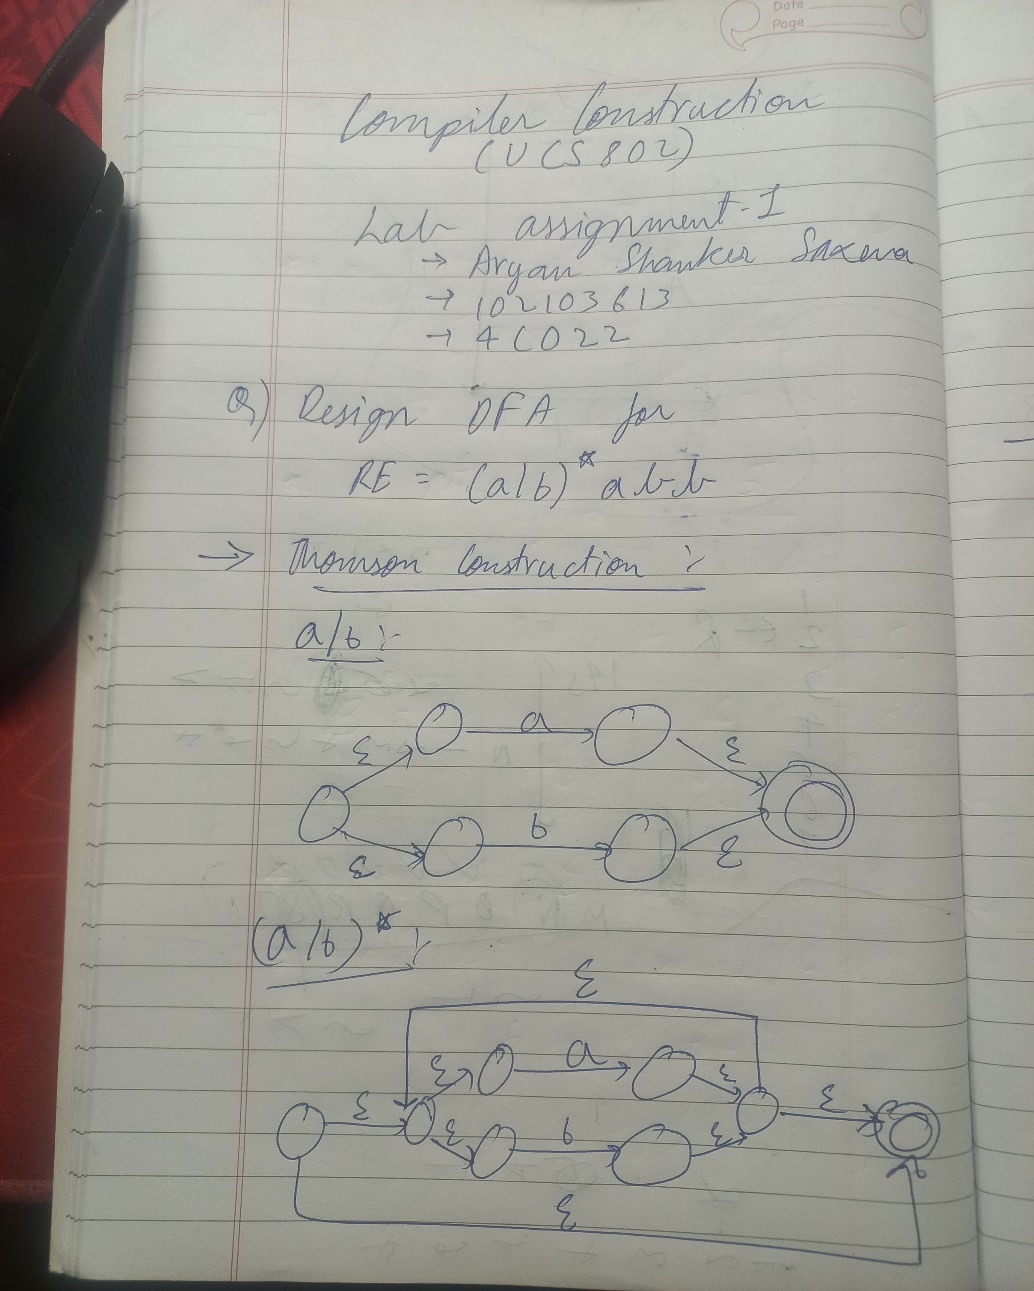 Date
Page
Compiler Construction
(UCS802)
Lab assignment-1
→ Aryan Shanker Saxena
→ 102103613
→ 4CO22
Q) Design DFA for
RE = (a/b)* abb
→ Thomson Construction :-
a/b :-
a
ε ε
b
ε ε
(a/b)* :-
ε
ε a ε
ε ε
ε b ε
ε